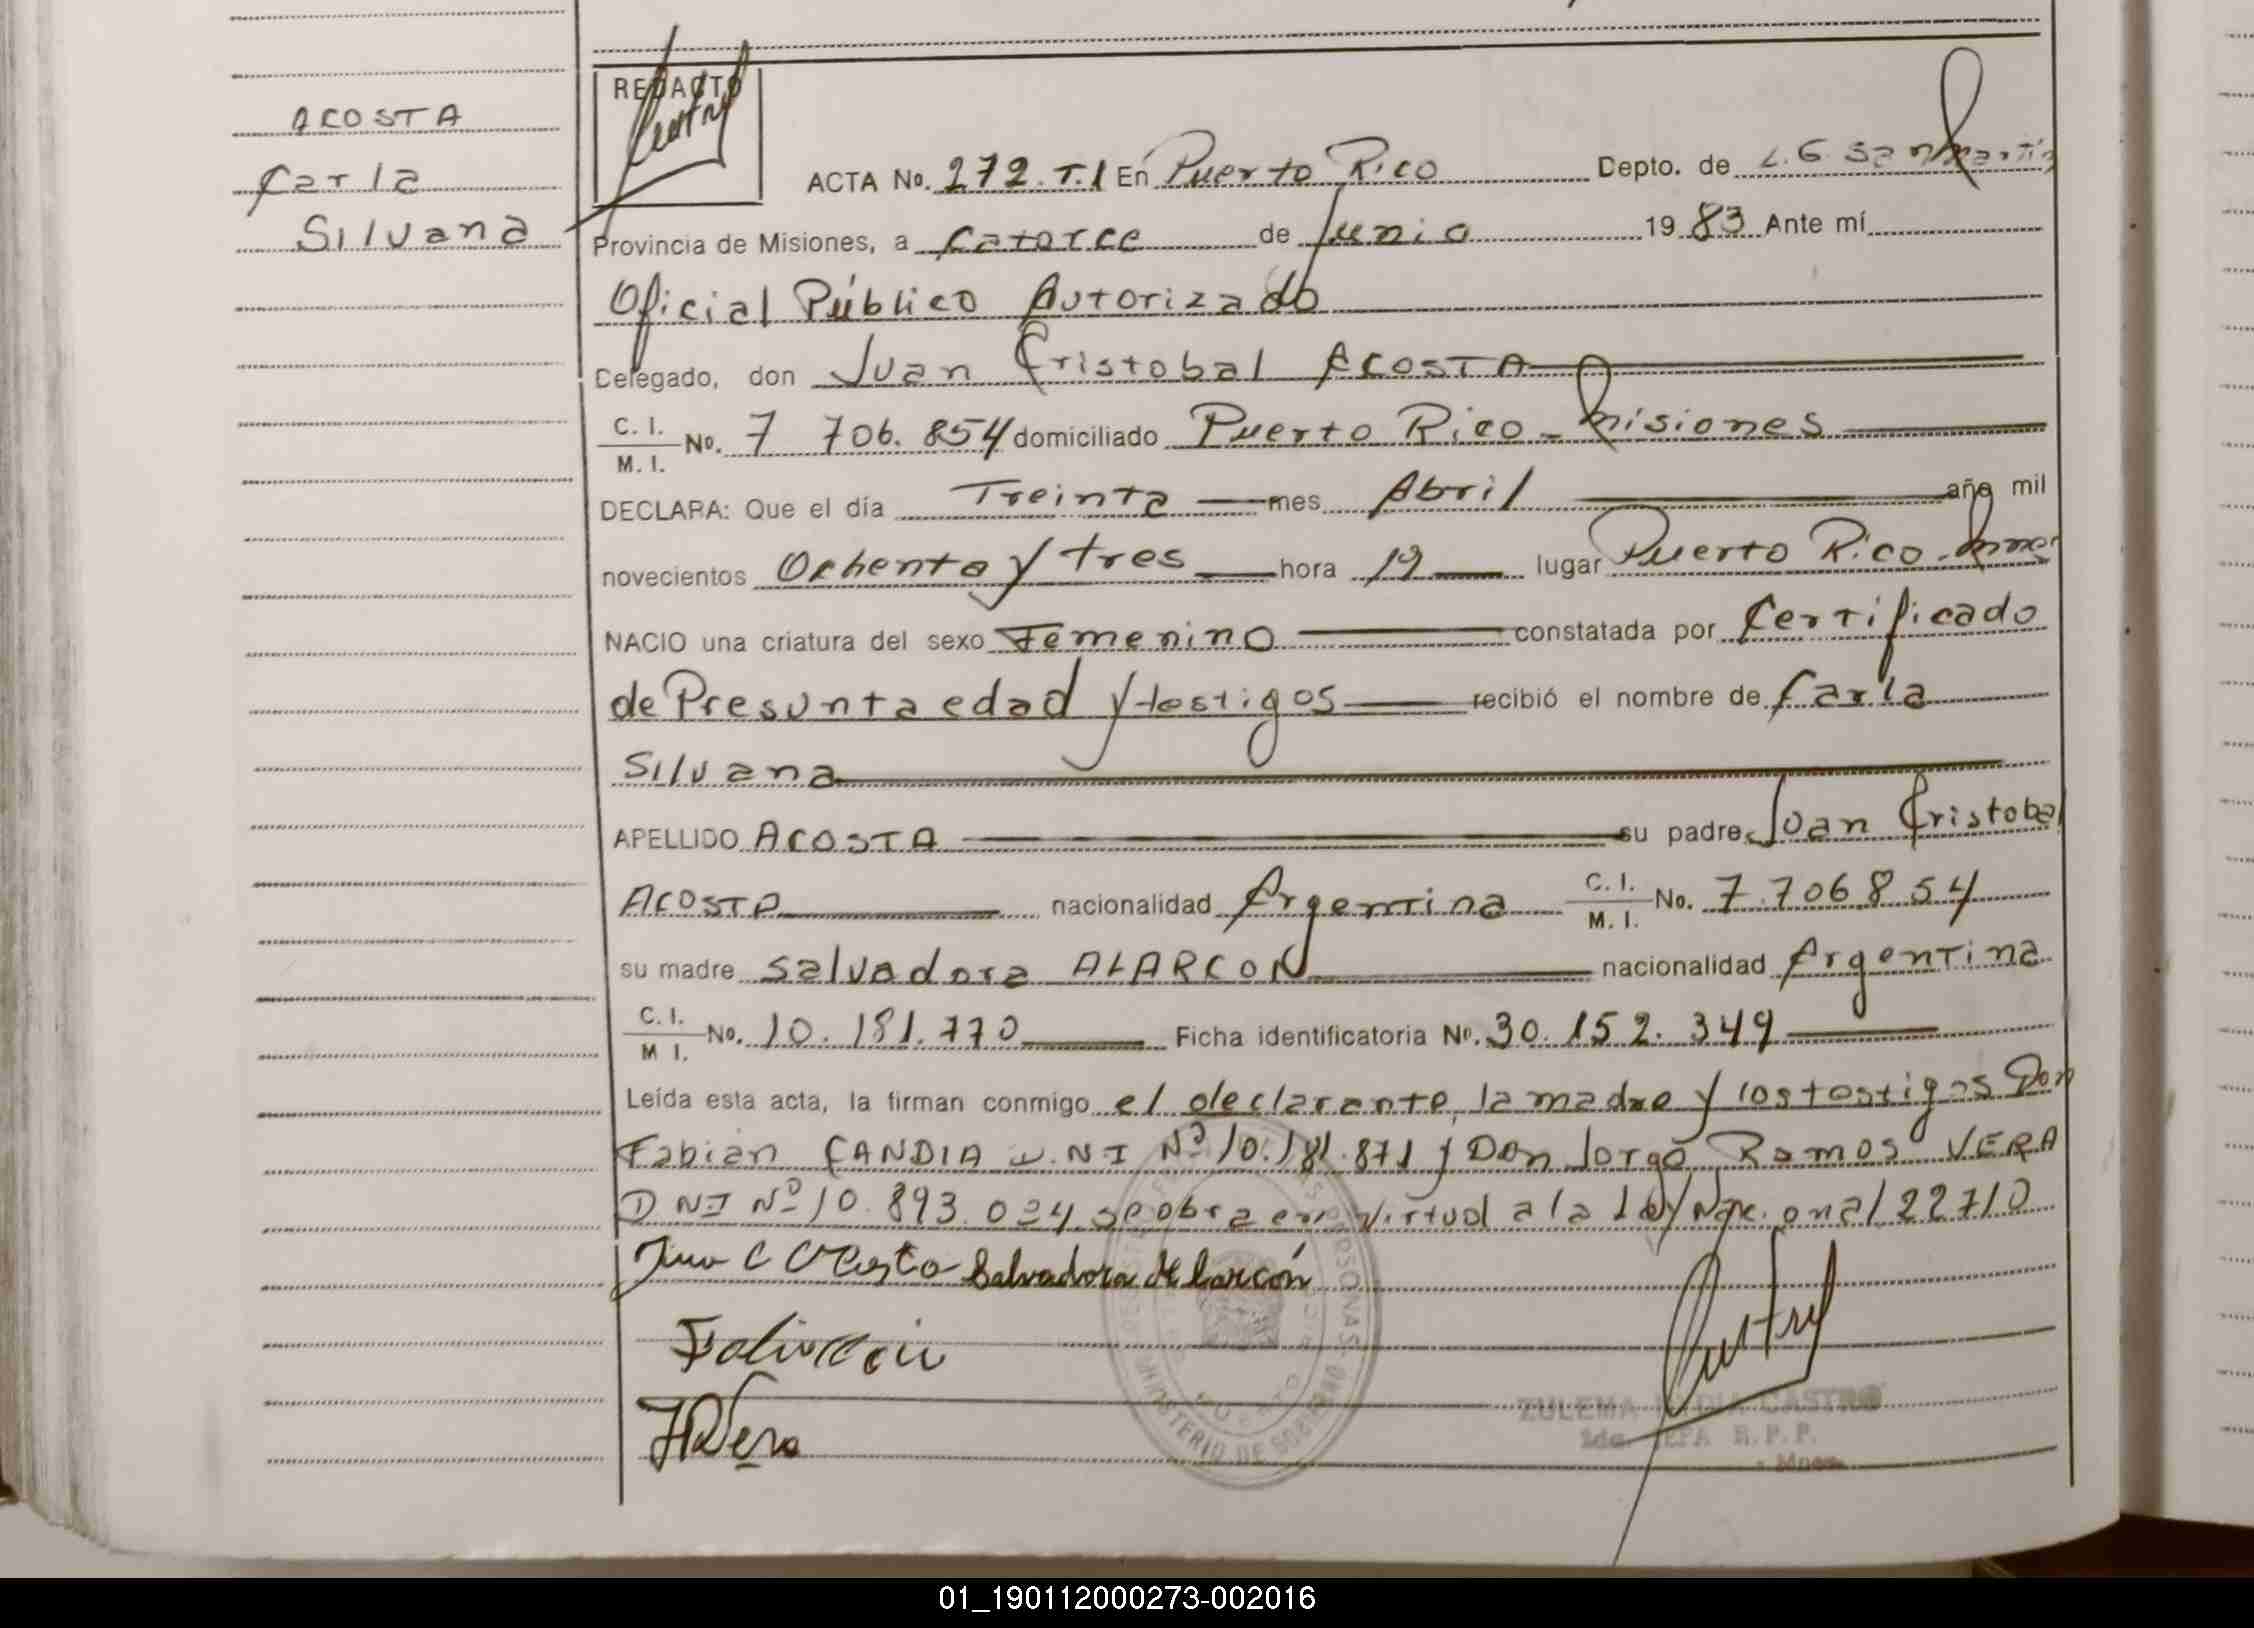 ACOSTA
Carla
Silvana
REDACTO
ACTA No. 272. T.1 En Puerto Rico Depto. de L.G. San Martín
Provincia de Misiones, a catorce de Junio 1983 Ante mí
Oficial Público Autorizado
Delegado, don Juan Cristobal ACOSTA
C. I. / M. I. No. 7 706.854 domiciliado Puerto Rico - Misiones
DECLARA: Que el día Treinta mes Abril año mil
novecientos Ochenta y tres hora 19 lugar Puerto Rico - Mnes
NACIO una criatura del sexo Femenino constatada por Certificado
de Presunta edad y testigos recibió el nombre de Carla
Silvana
APELLIDO ACOSTA su padre Juan Cristobal
ACOSTA nacionalidad Argentina C. I. / M. I. No. 7.706.854
su madre Salvadora ALARCON nacionalidad Argentina
C. I. / M I. No. 10.181.770 Ficha identificatoria No. 30.152.349
Leída esta acta, la firman conmigo el declarante, la madre y los testigos Don
Fabián CANDIA D.N.I Nº 10.181.871 y Don Jorge Ramos VERA
D N I Nº 10.893.024 se obra en virtud a la Ley Nacional 22710
Juan C Acosta Salvadora Alarcón
JRVera
MINISTERIO DE GOBIERNO
ZULEMA LYDIA CASTRO
2da. JEFA R.P.P.
Mnes.
01_190112000273-002016